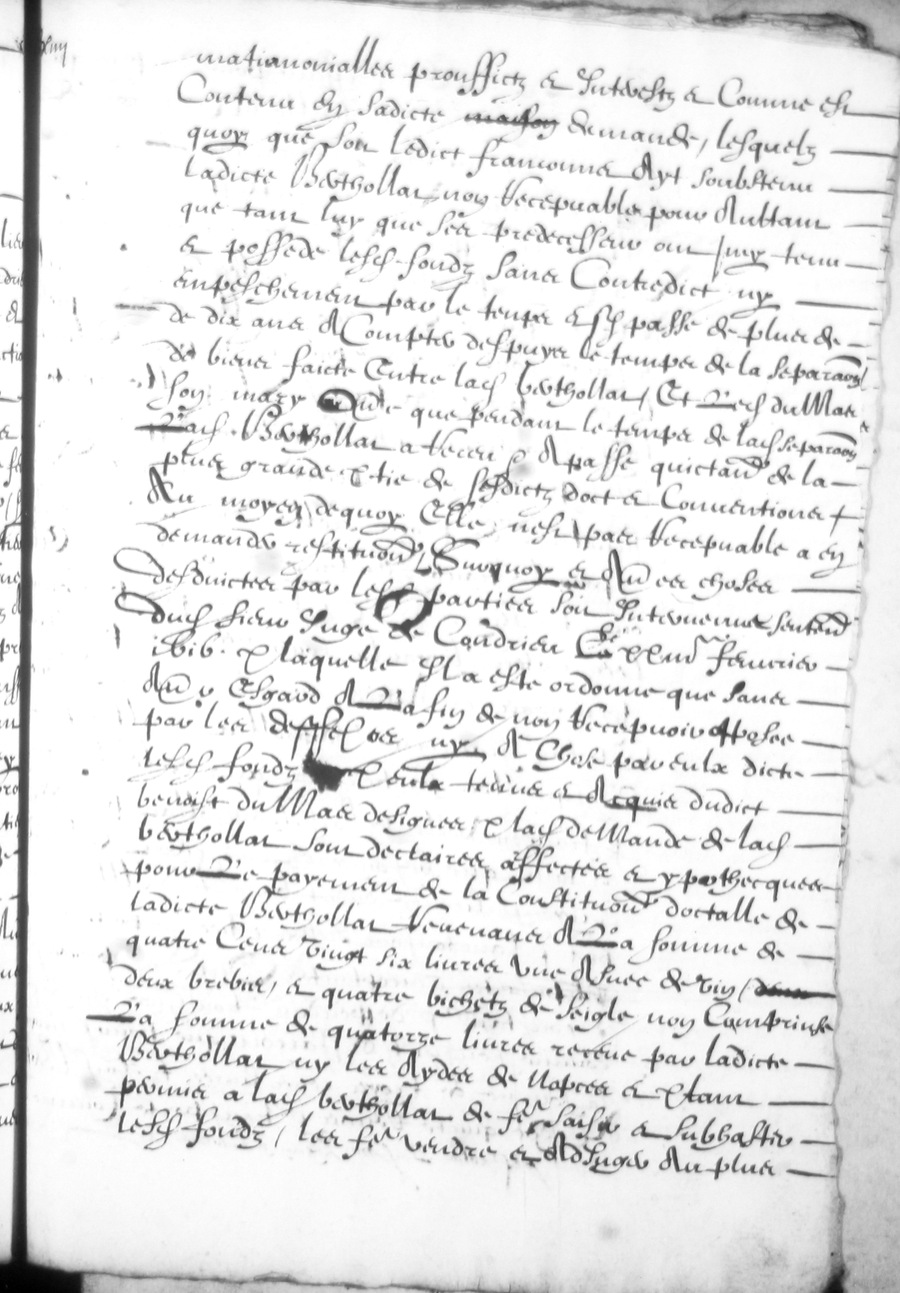 matrimonialles prouffictz et Interestz et Comme est
Contenu En sadicte maison demande, lesquelz
quoy que son ledict francoinne Ayt soubstenu
ladicte Berthollat non Recepvable pour Aultant
que tant luy que ses predecesseurs ont Juy tenu
et possede lesd fondz sans Contredict ny
empeschement par le temps et passe de plus de
de dix ans A Compter despuys le temps de la separaon
de biens faicte Entre lad berthollat, Et Led du Mas
son mary que pendant le temps de lad separaon
Lad. Berthollat a Receu et A passe quictance de la
plus grande ptie de sesdictz doct et Conventiones
Au moyen dequoy Elle nest pas Recepvable a en
demander restituon Surquoy et choses
desduictes par lesd parties son Intervenue sentence
dud sieur Juge de Condrieu xxiiii febvrier
p laquelle Il a este ordonne que sans
esgard A La fin de non Recepvoir opposee
par les deffences ny A Chose par eulx dicte
lesd fondz p eulx tenus et Acquis dudict
benoist du Mas designes p lad deMande de lad
berthollat sont declaires affectes et ypothecques
pour Le payement de la Constituon doctalle de
ladicte Berthollat Revenant A La somme de
quatre Cens vingt six livres une Asnee de vin,
deux brebis, et quatre bichetz de seigle non Comprinse
La somme de quatorze livres receue par ladicte
Berthollat ny les Aydes de Nopces et
permis a lad berthollat de fe saisir et subhaster
lesd fondz, les fe vendre et AdJuger Au plus